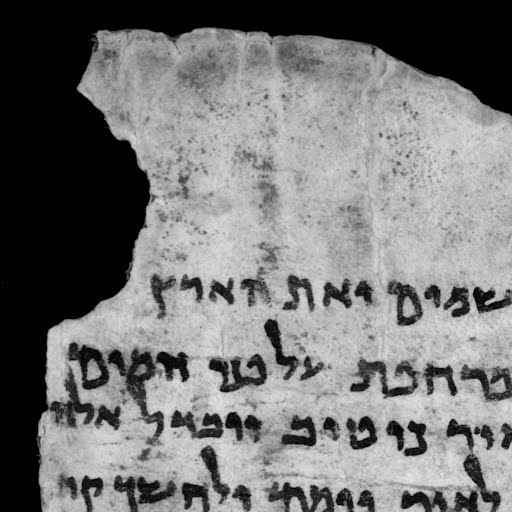 שמים ואת הארץ
מרחפת על פני המים
כי טוב ויבדל אלהי
לאור יומם ולחשך קר